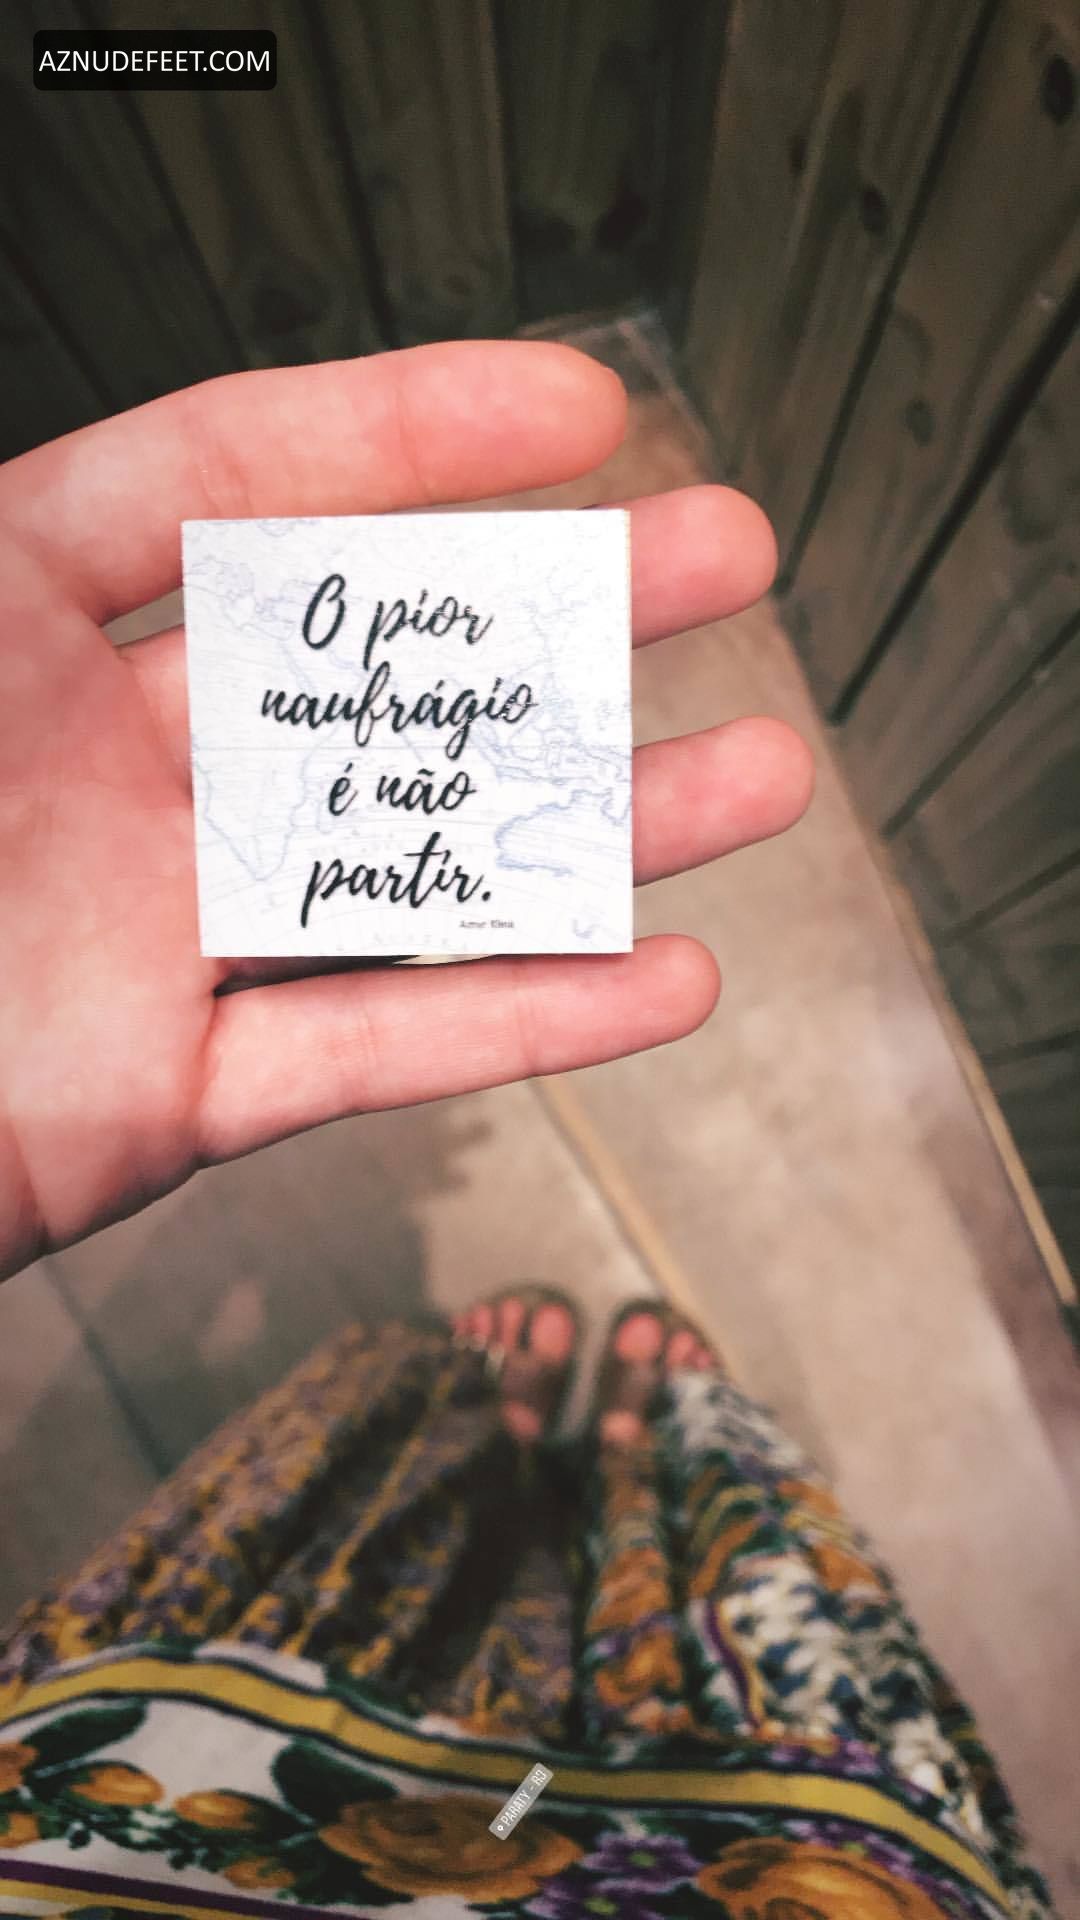 AZNUDEFEET.COM
O pior
naufrágio
é não
partir.
Amyr Klink
PARATY - RJ